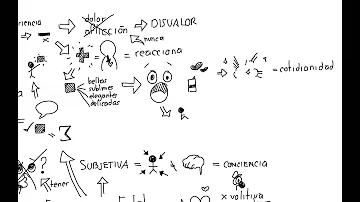 eriencia → dolor aflicción → DISVALOR
nunca
= reacciona
bellas
sublimes
elegantes
delicadas
= cotidianidad
SUBJETIVA = CONCIENCIA
?
tener
x volitiva